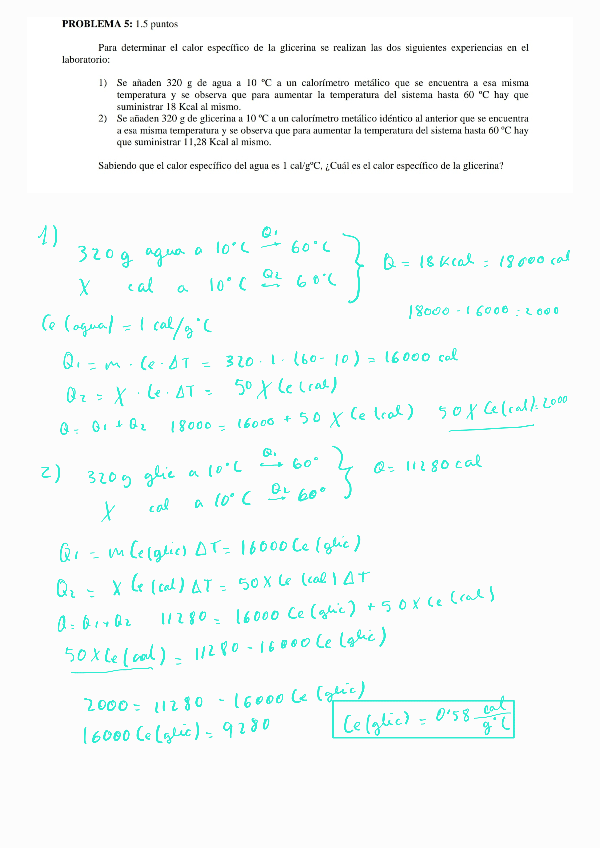 PROBLEMA 5: 1.5 puntos
Para determinar el calor específico de la glicerina se realizan las dos siguientes experiencias en el
laboratorio:
1) Se añaden 320 g de agua a 10 ºC a un calorímetro metálico que se encuentra a esa misma
temperatura y se observa que para aumentar la temperatura del sistema hasta 60 ºC hay que
suministrar 18 Kcal al mismo.
2) Se añaden 320 g de glicerina a 10 ºC a un calorímetro metálico idéntico al anterior que se encuentra
a esa misma temperatura y se observa que para aumentar la temperatura del sistema hasta 60 ºC hay
que suministrar 11,28 Kcal al mismo.
Sabiendo que el calor específico del agua es 1 cal/gºC, ¿Cuál es el calor específico de la glicerina?
1)
320g agua a 10°C Q1→ 60°C
X cal a 10°C Q2→ 60°C
Q = 18 Kcal = 18000 cal
18000 - 16000 = 2000
Ce (agua) = 1 cal/g°C
Q1 = m · Ce · ΔT = 320 · 1 · (60 - 10) = 16000 cal
Q2 = X · Ce · ΔT = 50 X Ce (cal)
Q = Q1 + Q2 18000 = 16000 + 50 X Ce (cal) 50 X Ce (cal) = 2000
2) 320g glic a 10°C Q1→ 60°
X cal a 10°C Q2→ 60°
Q = 11280 cal
Q1 = m Ce (glic) ΔT = 16000 Ce (glic)
Q2 = X Ce (cal) ΔT = 50 X Ce (cal) ΔT
Q = Q1 + Q2 11280 = 16000 Ce (glic) + 50 X Ce (cal)
50 X Ce (cal) = 11280 - 16000 Ce (glic)
2000 = 11280 - 16000 Ce (glic)
16000 Ce (glic) = 9280
Ce (glic) = 0'58 cal/g°C